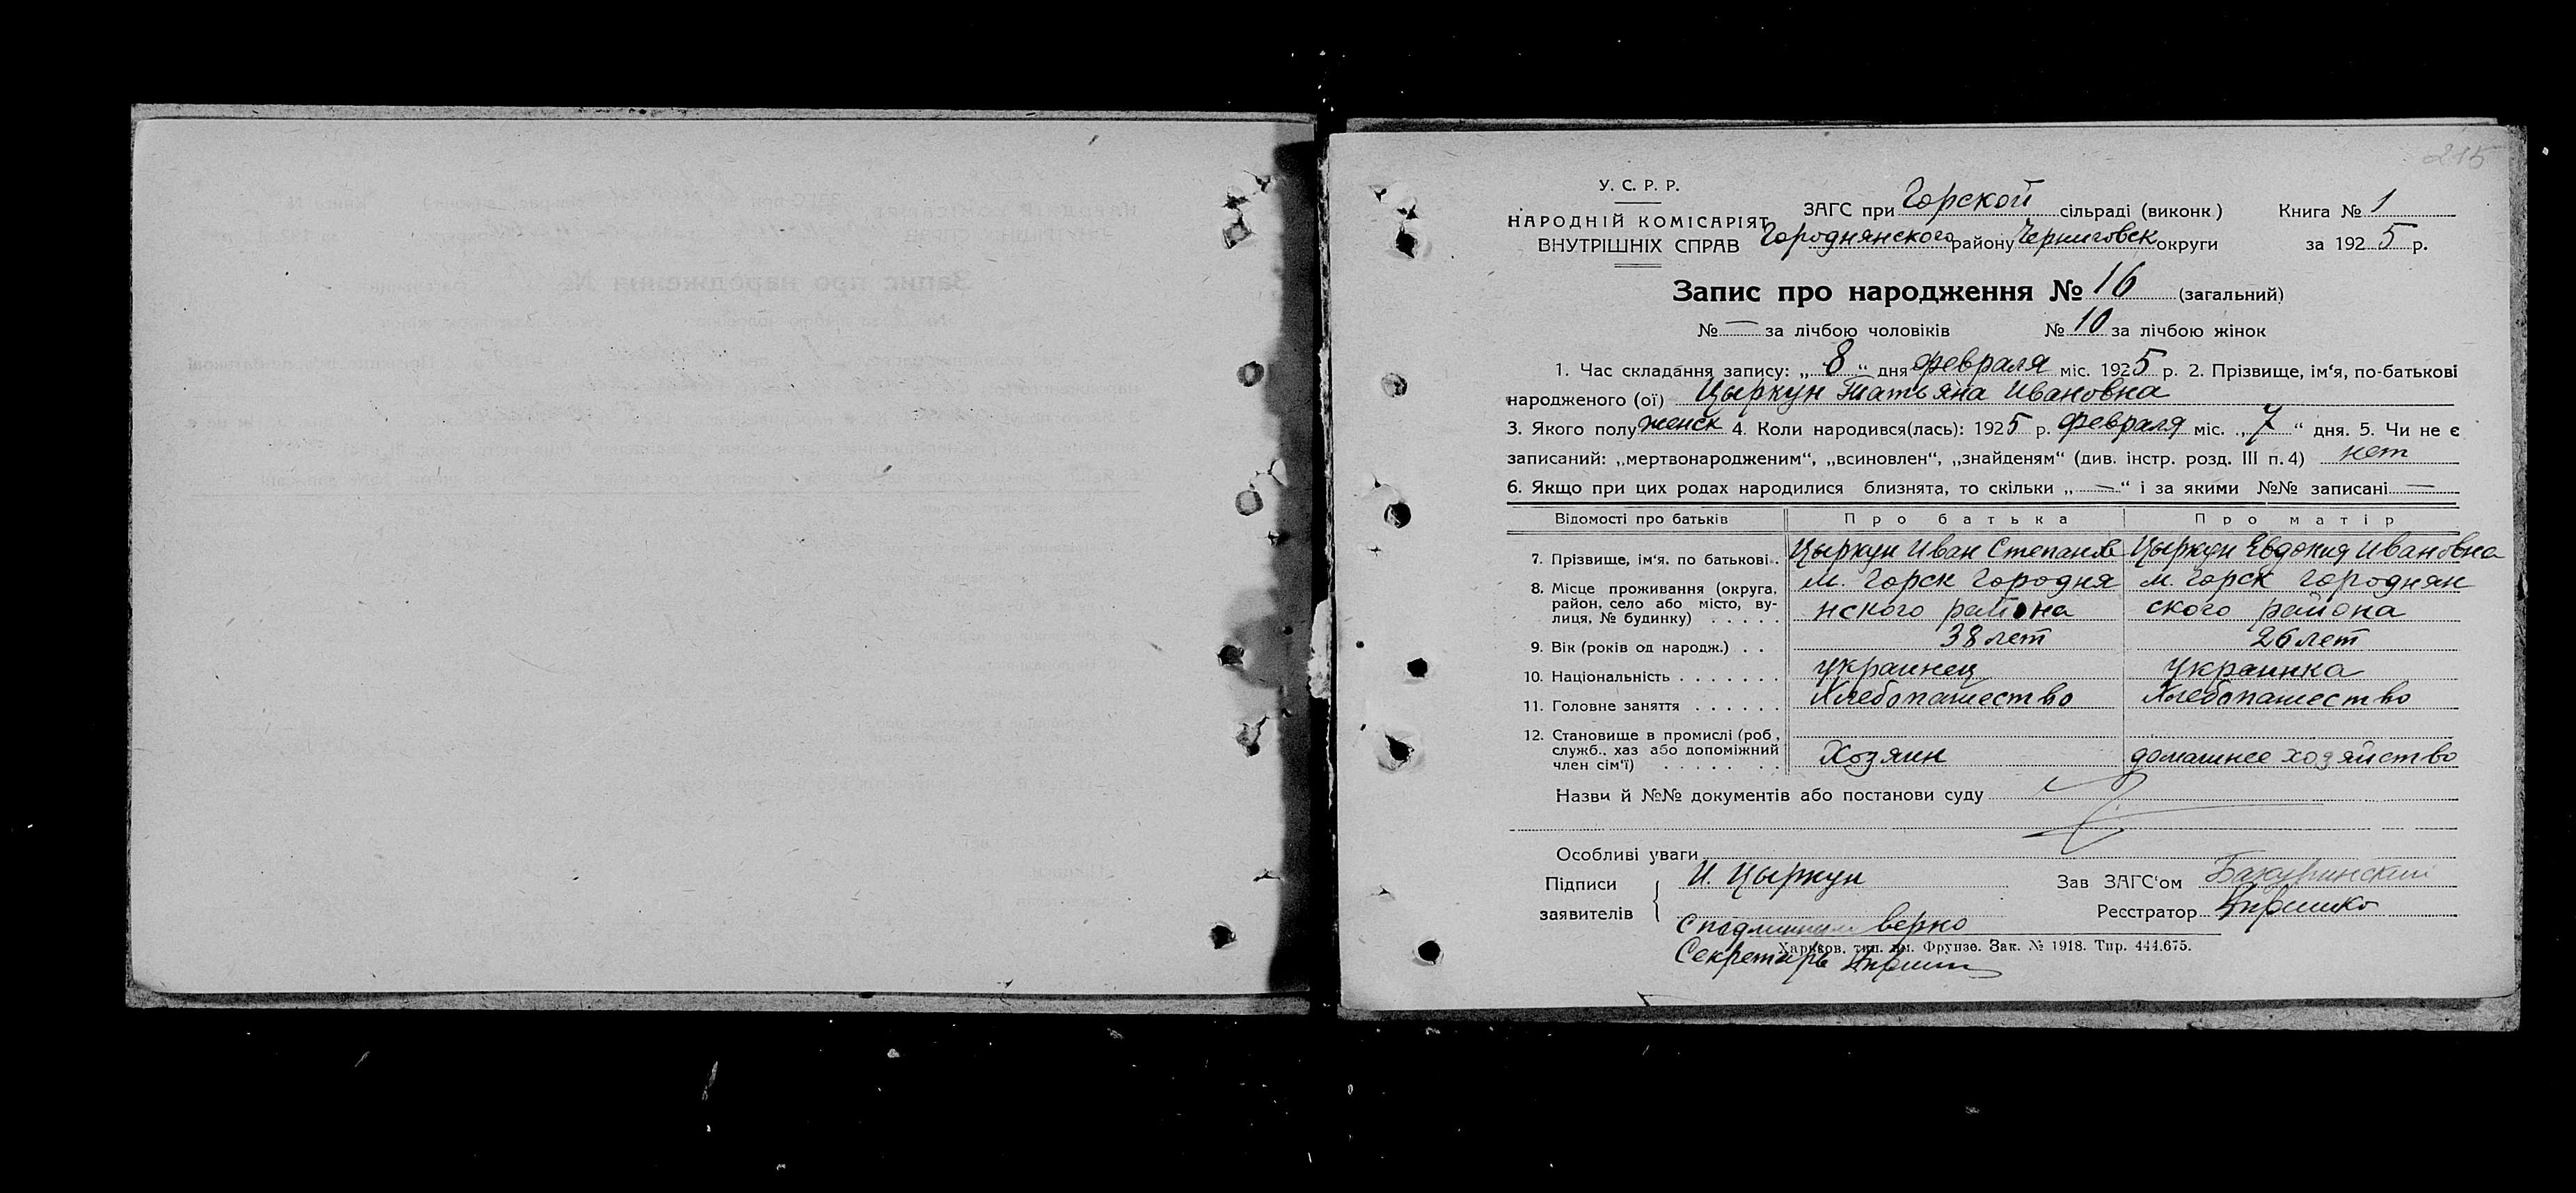 215
У. С. Р. Р.
НАРОДНІЙ КОМІСАРІЯТ
ВНУТРІШНІХ СПРАВ
ЗАГС при Горской сільраді (виконк.) Книга № 1
Городнянского району Черниговск округи за 1925 р.
Запис про народження № 16 (загальний)
№ — за лічбою чоловіків № 10 за лічбою жінок
1. Час складання запису: „8“ дня февраля міс. 1925 р. 2. Прізвище, ім‘я, по-батькові
народженого (ої) Цыркун Татьяна Ивановна
3. Якого полу женск 4. Коли народився(лась): 1925 р. февраля міс. „7“ дня. 5. Чи не є
записаний: „мертвонародженим“, „всиновлен“, „знайденям“ (див. інстр. розд. III п. 4) нет
6. Якщо при цих родах народилися близнята, то скільки „—“ і за якими №№ записані —
Відомості про батьків Про батька Про матір
7. Прізвище, ім‘я, по батькові. Цыркун Иван Степанов Цыркун Евдокия Ивановна
8. Місце проживання (округа, район, село або місто, вулиця, № будинку) м. Горск Городня м. Горск Городнян
нского района ского района
9. Вік (років од народж.) 38 лет 26 лет
10. Національність украинец украинка
11. Головне заняття Хлебопашество Хлебопашество
12. Становище в промислі (роб., служб., хаз або допоміжний член сім‘ї) Хозяин домашнее хозяйство
Назви й №№ документів або постанови суду
Особливі уваги
Підписи заявителів И. Цыркун
Зав ЗАГС‘ом
Реєстратор
С подлинным верно
Харьков, тип. им. Фрунзе. Зак. № 1918. Тир. 444.675.
Секретарь